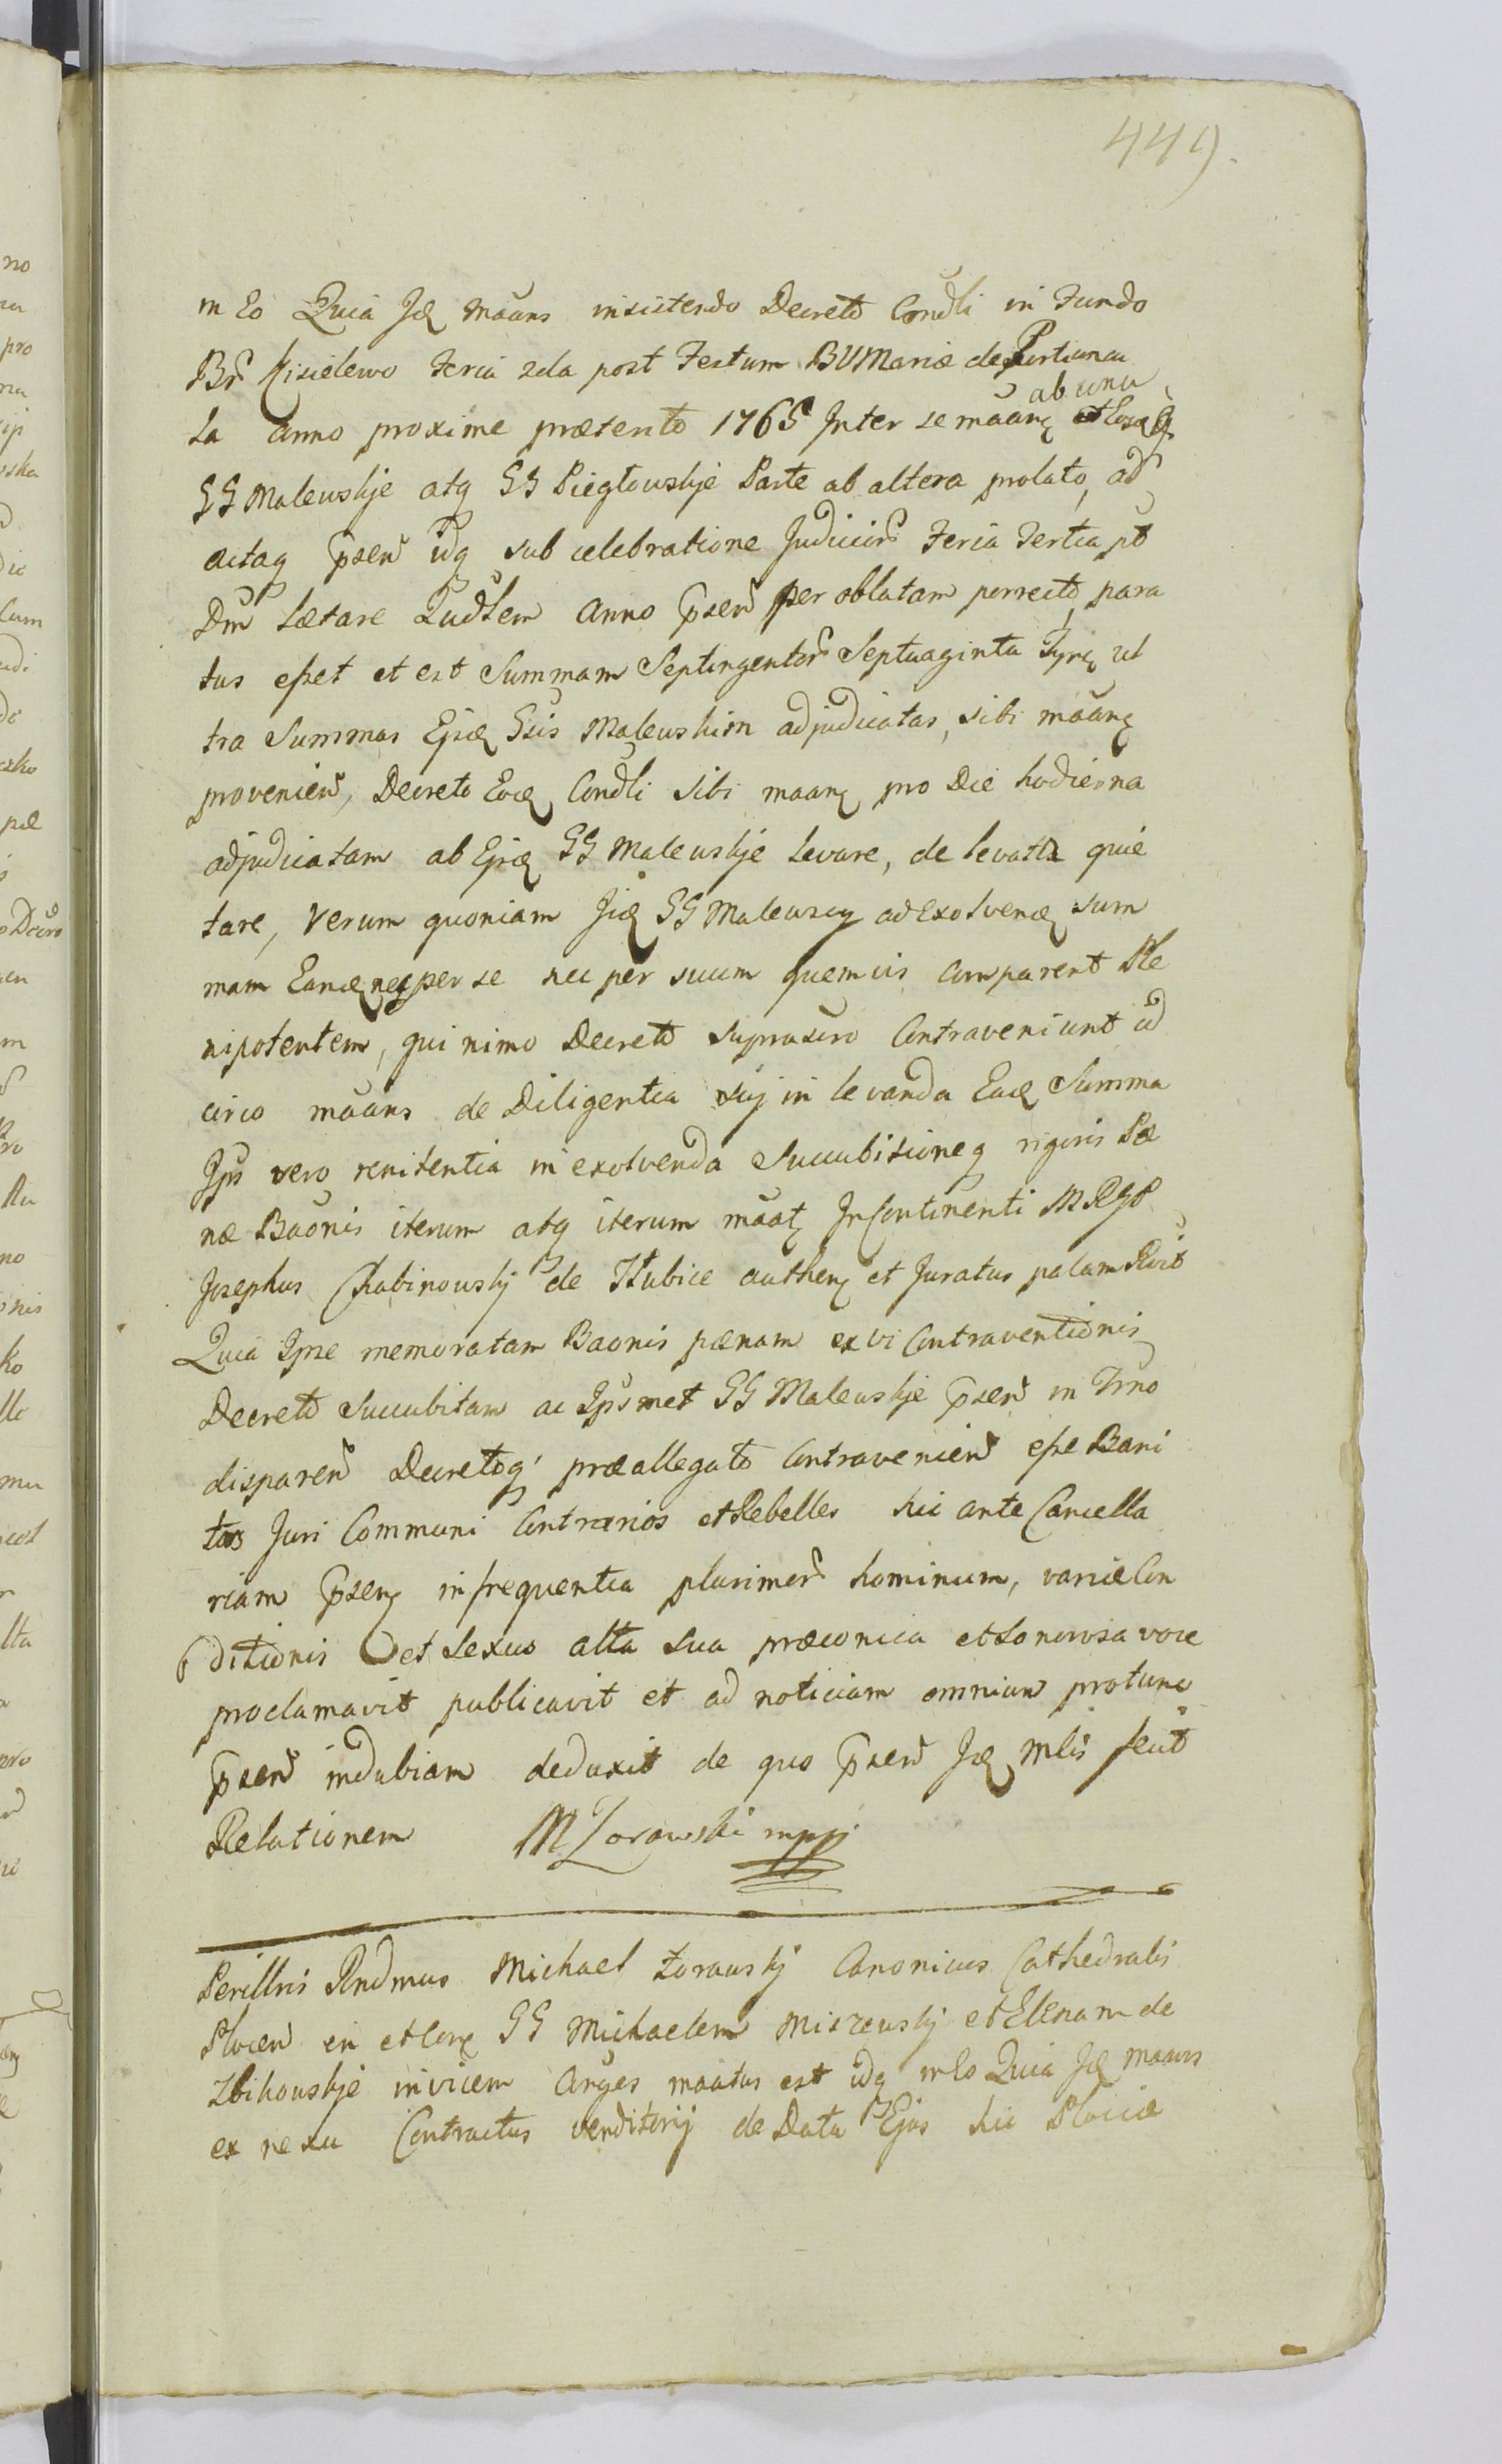 449.
in Eo Quia Idē māans insistendo Decreto Condli in Fundo
Br Kisielewo Feria 2da post Festum BVMariæ de Portiuncu
ab una
la Anno proxime præterito 1765 Inter se māanē et
GG Malewskje atq GG Piegłowskje Parte ab altera prolato, ad
actaq pzen idq sub celebratione Judicior Feria Tertia pt
Dm Lætare Qudlem Anno pzen per oblatam porrecto, para
tus eßet et est Summam Septingentor Septuaginta Tynē ul
tra Summas Ejsdē Gsis Malewskim adjudicatas, sibi māanē
provenien, Decreto Eodē Condli sibi maanē pro Die hodierna
adjudicatam ab Ejsdē GG Malewskje levare, de levata quie
tare, Verum quoniam Jidē GG Malewscy ad Exolvendē sum
mam Eandē neq per se nec per suum quemvis comparent Ple
nipotentem, qui nimo Decreto suprascro Contraveniunt id
circo māans de Diligentia suj in levanda Eadē Summa
Ips vero renitentia in exolvenda Succubitioneq rigoris Pæ
næ Bāonis iterum atq iterum māatē In Continenti MRGP
Josephus Chabinowskj de Słubice authenē et Juratus palam Rcit
Quia Ipse memoratam Baonis pænam ex vi Contraventionis
Decreto Succubitam ac Ipsmet GG Malewskje pzen in Trno
disparen Decretoq præallegato Contravenien eße Bani
tos Juri Communi Contrarios et Rebelles hic ante Cancella
riam pzenē in frequentia plurimor hominum, variæ Con
ditionis et sexus alta sua præconica et sonorosa voce
proclamavit publicavit et ad noticiam omnium protunc
pzen indubiam deduxit de quo pzen Idē Mlis fecit
Relationem M Zorawski mpp
Perillris Rndmus Michael Zorawskj Canonicus Cathedralis
Plocen in et Con GG Michaelem Miszewskj et Elenam de
Zbikowskje invicem Cnges māatus est idq in Eo Quia Idē maans
ex nexu Contractus venditorij de Data Ejus hic Plociæ